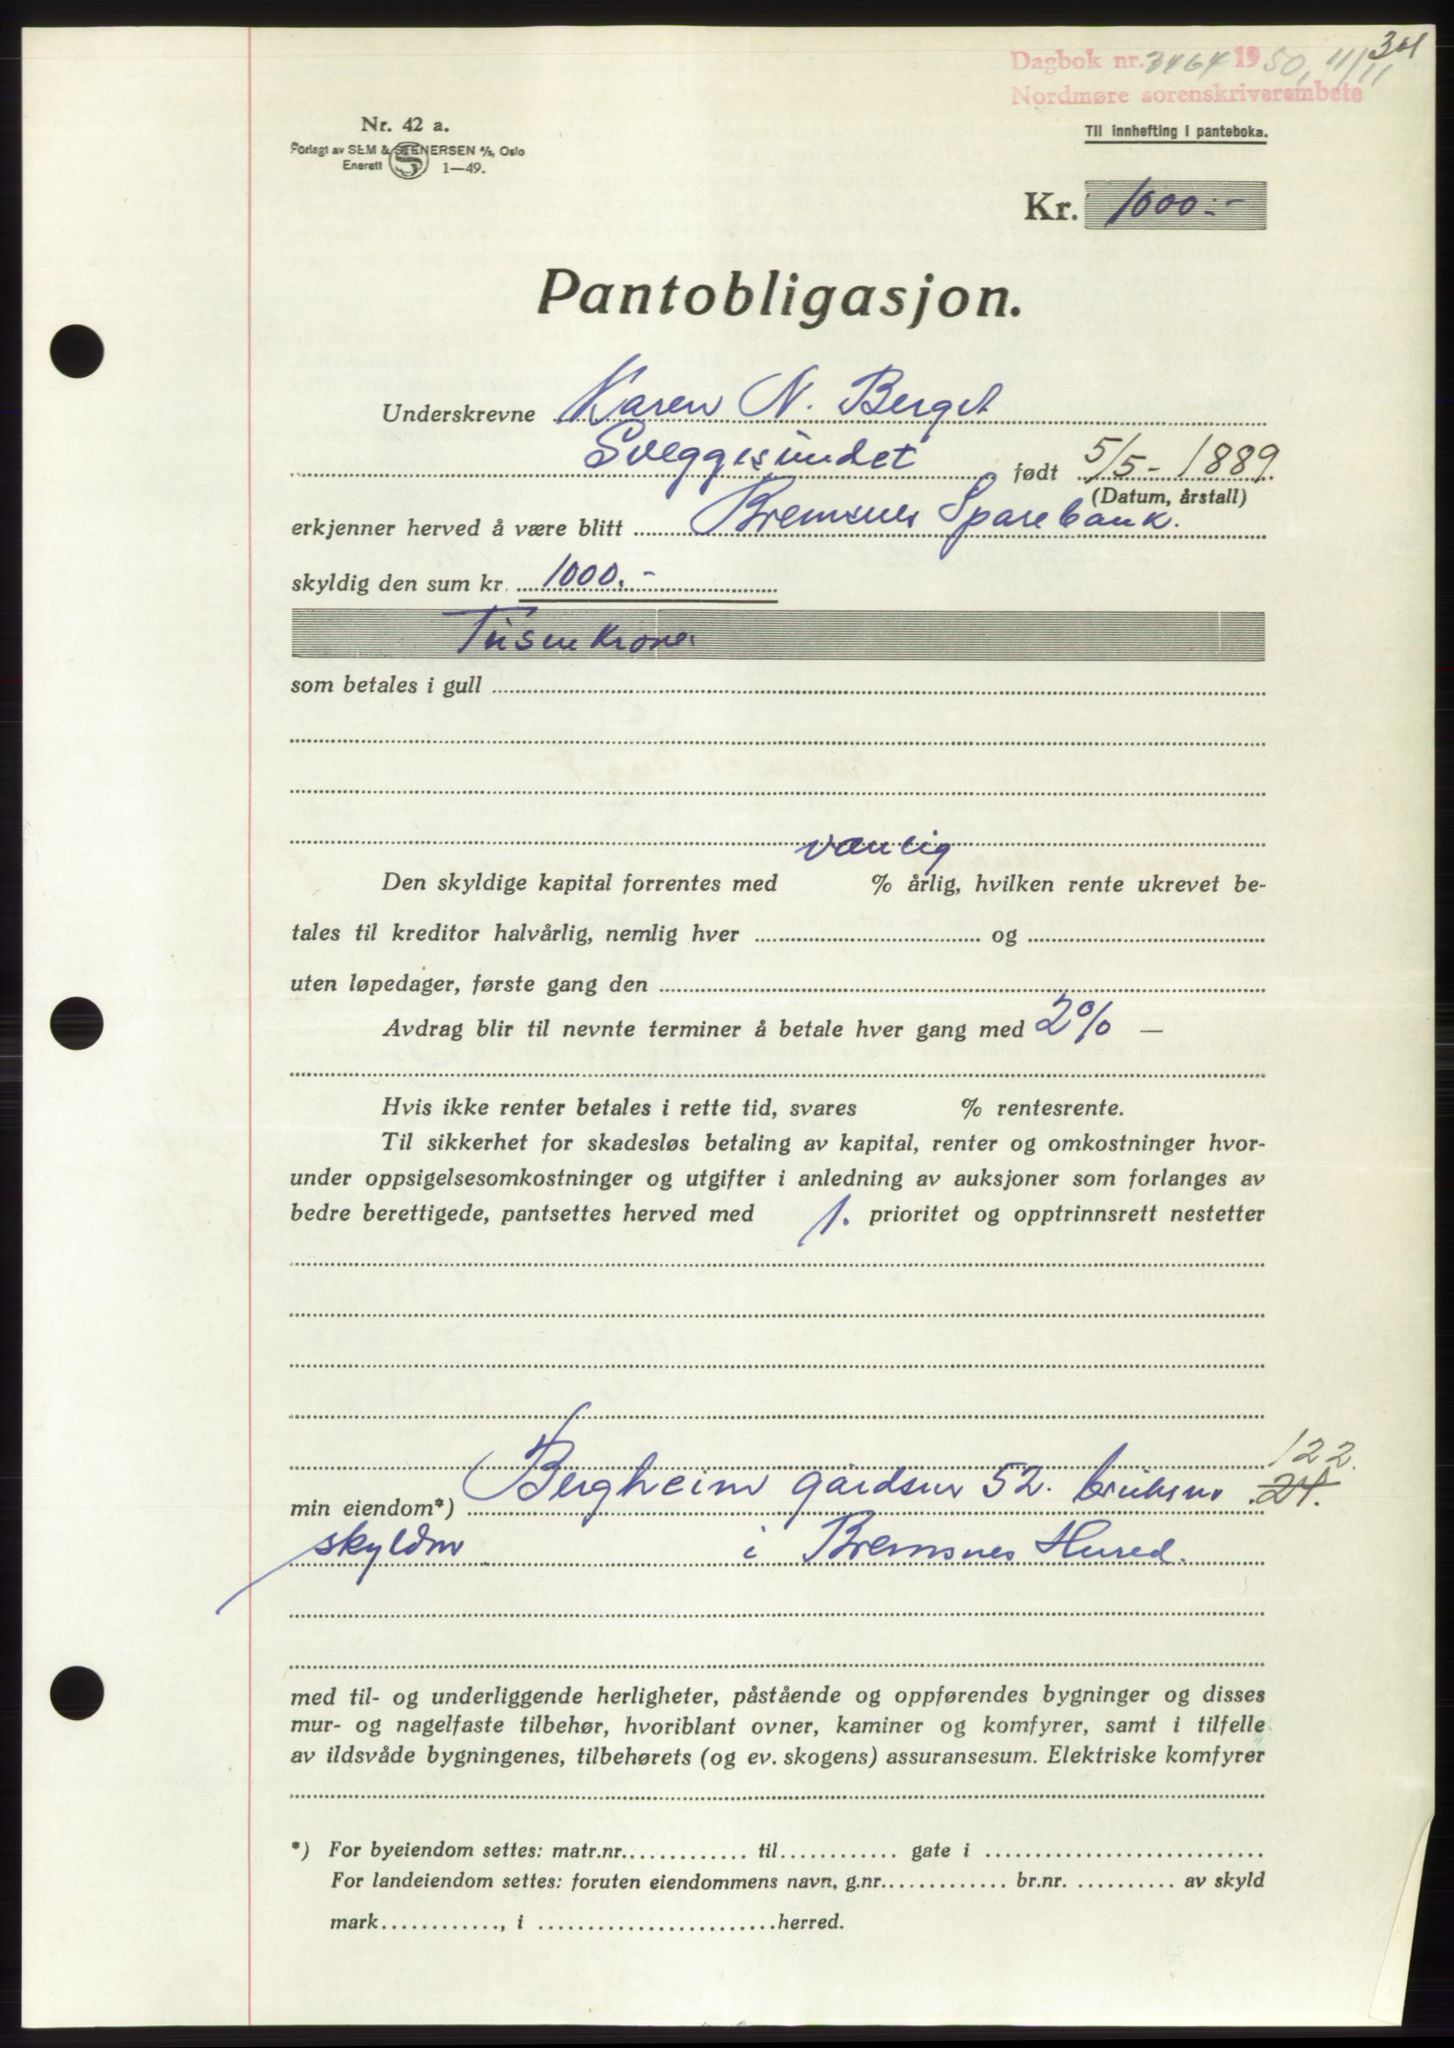 301
Dagbok nr. 3464 1950, 11/11
Nordmøre sorenskriverembete
Nr. 42 a.
Forlagt av SEM & STENERSEN A/S, Oslo
Enerett S 1—49.
Til innhefting i panteboka.
Kr. 1000.-
Pantobligasjon.
Underskrevne Karen N. Berget
Sveggesundet født 5/5- 1889.
(Datum, årstall)
erkjenner herved å være blitt Bremsnes Sparebank.
skyldig den sum kr. 1000.-
Tusen kroner
som betales i gull
vanlig
Den skyldige kapital forrentes med % årlig, hvilken rente ukrevet be-
tales til kreditor halvårlig, nemlig hver og
uten løpedager, første gang den
Avdrag blir til nevnte terminer å betale hver gang med 2% —
Hvis ikke renter betales i rette tid, svares % rentesrente.
Til sikkerhet for skadesløs betaling av kapital, renter og omkostninger hvor-
under oppsigelsesomkostninger og utgifter i anledning av auksjoner som forlanges av
bedre berettigede, pantsettes herved med 1. prioritet og opptrinnsrett nestetter
122.
min eiendom*) Bergheim gårdsnr 52. bruksnr 24.
skyldnr i Bremsnes Hered.
med til- og underliggende herligheter, påstående og oppførendes bygninger og disses
mur- og nagelfaste tilbehør, hvoriblant ovner, kaminer og komfyrer, samt i tilfelle
av ildsvåde bygningenes, tilbehørets (og ev. skogens) assuransesum. Elektriske komfyrer
*) For byeiendom settes: matr.nr. til gate i
For landeiendom settes: foruten eiendommens navn, g.nr. br.nr. av skyld
mark , i herred.